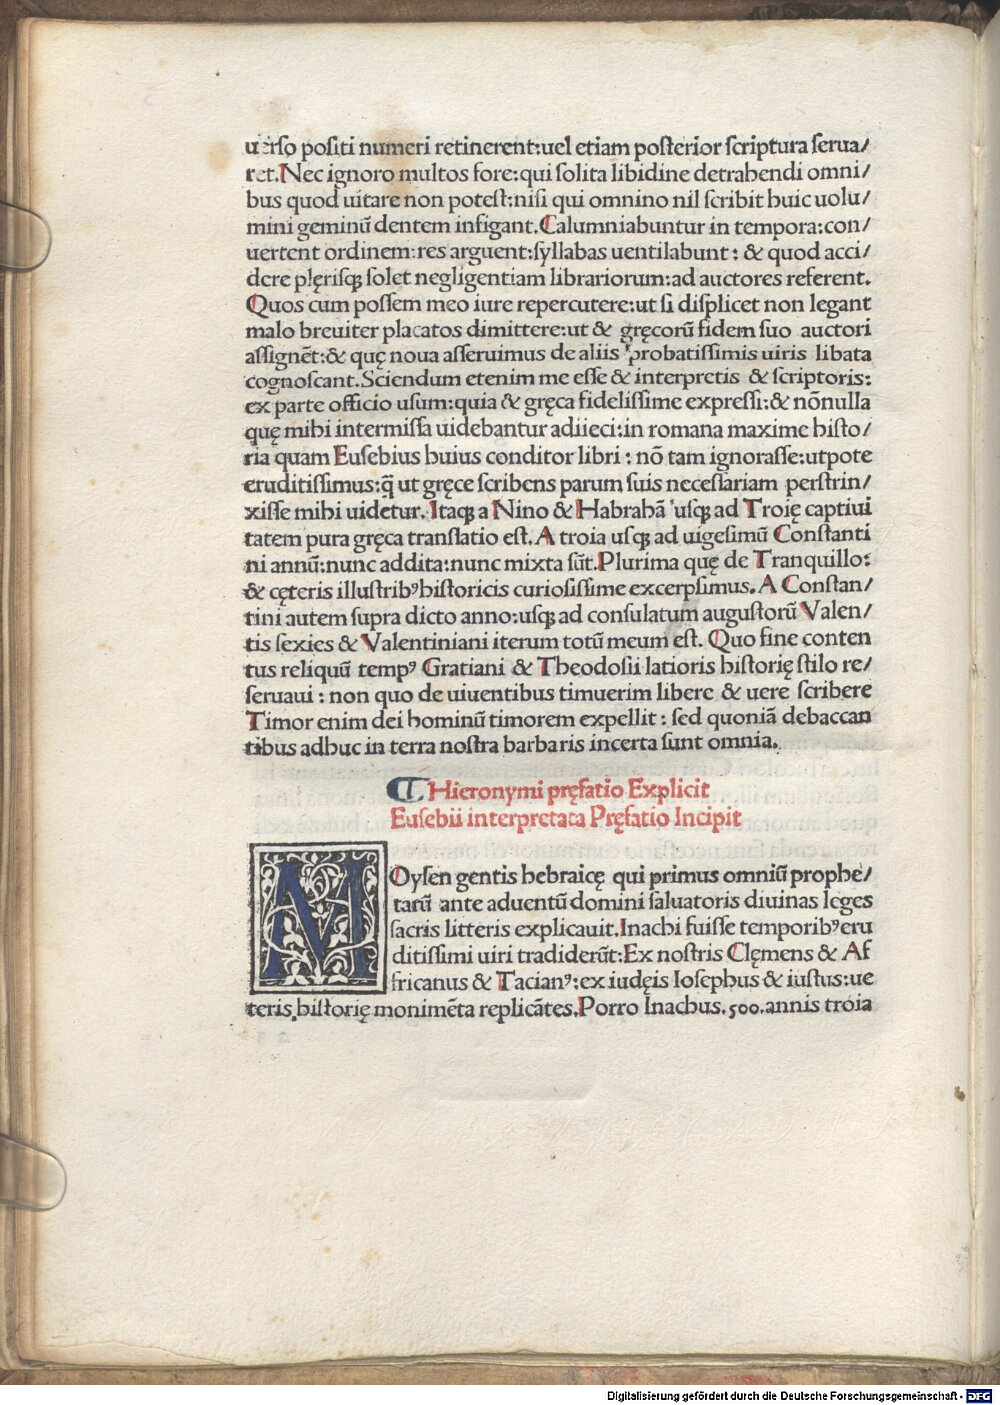 uerso positi numeri retinerent:uel etiam posterior scriptura serua/
ret.Nec ignoro multos fore:qui solita libidine detrahendi omni/
bus quod uitare non potest:nisi qui omnino nil scribit huic uolu/
mini geminũ dentem infigant.Calumniabuntur in tempora:con/
uertent ordinem:res arguent:syllabas uentilabunt: & quod acci/
dere plęrisqꝫ solet negligentiam librariorum:ad auctores referent.
Quos cum possem meo iure repercutere:ut si displicet non legant
malo breuiter placatos dimittere:ut & gręcorũ fidem suo auctori
assignẽt:& quę noua asseruimus de aliis probatissimis uiris libata
cognoscant.Sciendum etenim me esse & interpretis & scriptoris:
ex parte officio usum:quia & gręca fidelissime expressi:& nõnulla
quę mihi intermissa uidebantur adiieci:in romana maxime histo/
ria quam Eusebius huius conditor libri : nõ tam ignorasse:utpote
eruditissimus:q̃ ut gręce scribens parum suis necessariam perstrin/
xisse mihi uidetur. Itaqꝫ a Nino & Habrahã usqꝫ ad Troię captiui
tatem pura gręca translatio est. A troia usqꝫ ad uigesimũ Constanti
ni annũ:nunc addita:nunc mixta sũt.Plurima quę de Tranquillo:
& cęteris illustribꝰhistoricis curiosissime excerpsimus. A Constan/
tini autem supra dicto anno:usqꝫ ad consulatum augustorũ Valen/
tis sexies & Valentiniani iterum totũ meum est. Quo fine conten
tus reliquũ tempꝰ Gratiani & Theodosii latioris historię stilo re/
seruaui : non quo de uiuentibus timuerim libere & uere scribere
Timor enim dei hominũ timorem expellit : sed quoniã debaccan
tibus adhuc in terra nostra barbaris incerta sunt omnia.
Hieronymi pręfatio Explicit
Eusebii interpretata Pręfatio Incipit
MOysen gentis hebraicę qui primus omniũ prophe/
tarũ ante aduentũ domini saluatoris diuinas leges
sacris litteris explicauit.Inachi fuisse temporibꝰeru
ditissimi uiri tradiderũt:Ex nostris Clęmens & Af
fricanus & Tacianꝰ:ex iudęis Iosephus & iustus:ue
teris historię monimẽta replicãtes.Porro Inachus.500.annis troia
Digitalisierung gefördert durch die Deutsche Forschungsgemeinschaft - DFG